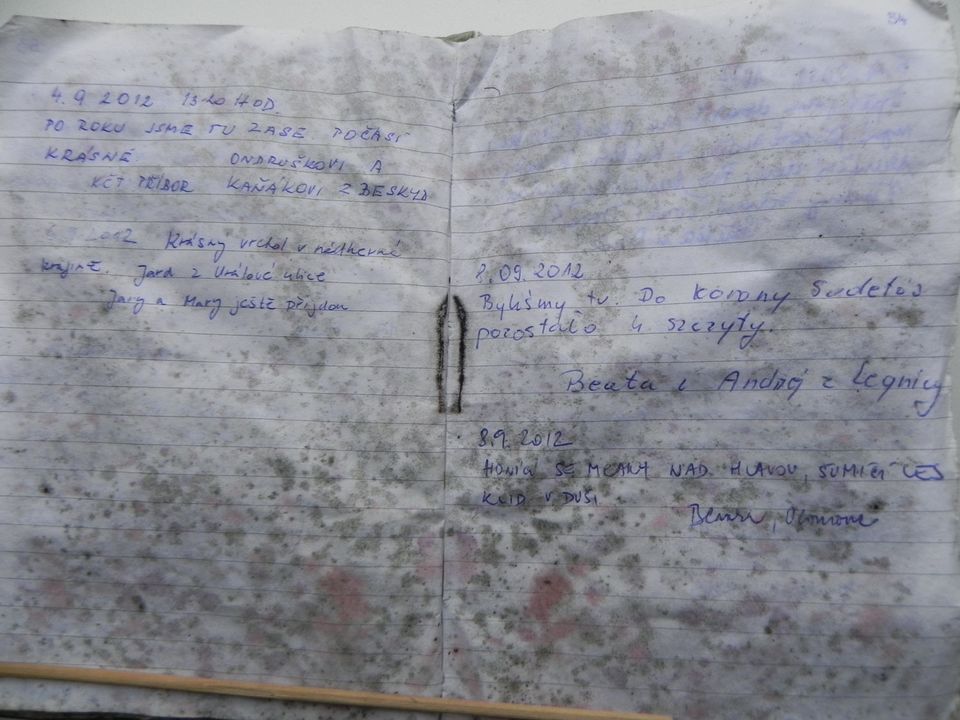 4.9 2012 13 20 HOD.
PO ROKU JSME TU ZASE POČASÍ
KRÁSNÉ ONDRUŠKOVI A
KČT PŘÍBOR KAŇÁKOVI Z BESKYD
2012 Krásný vrchol v nádherné
krajině. Jard z ulice
Jary a Mary ještě přijdou
54
8.09.2012
Byliśmy tu. Do korony Sudetów
pozostało 4 szczyty.
Beata i Andrzej z Legnicy
8.9.2012
HONÍCÍ SE MRAKY NAD HLAVOU, ŠUMÍCÍ LES
KLID V DUŠI
Olomouc